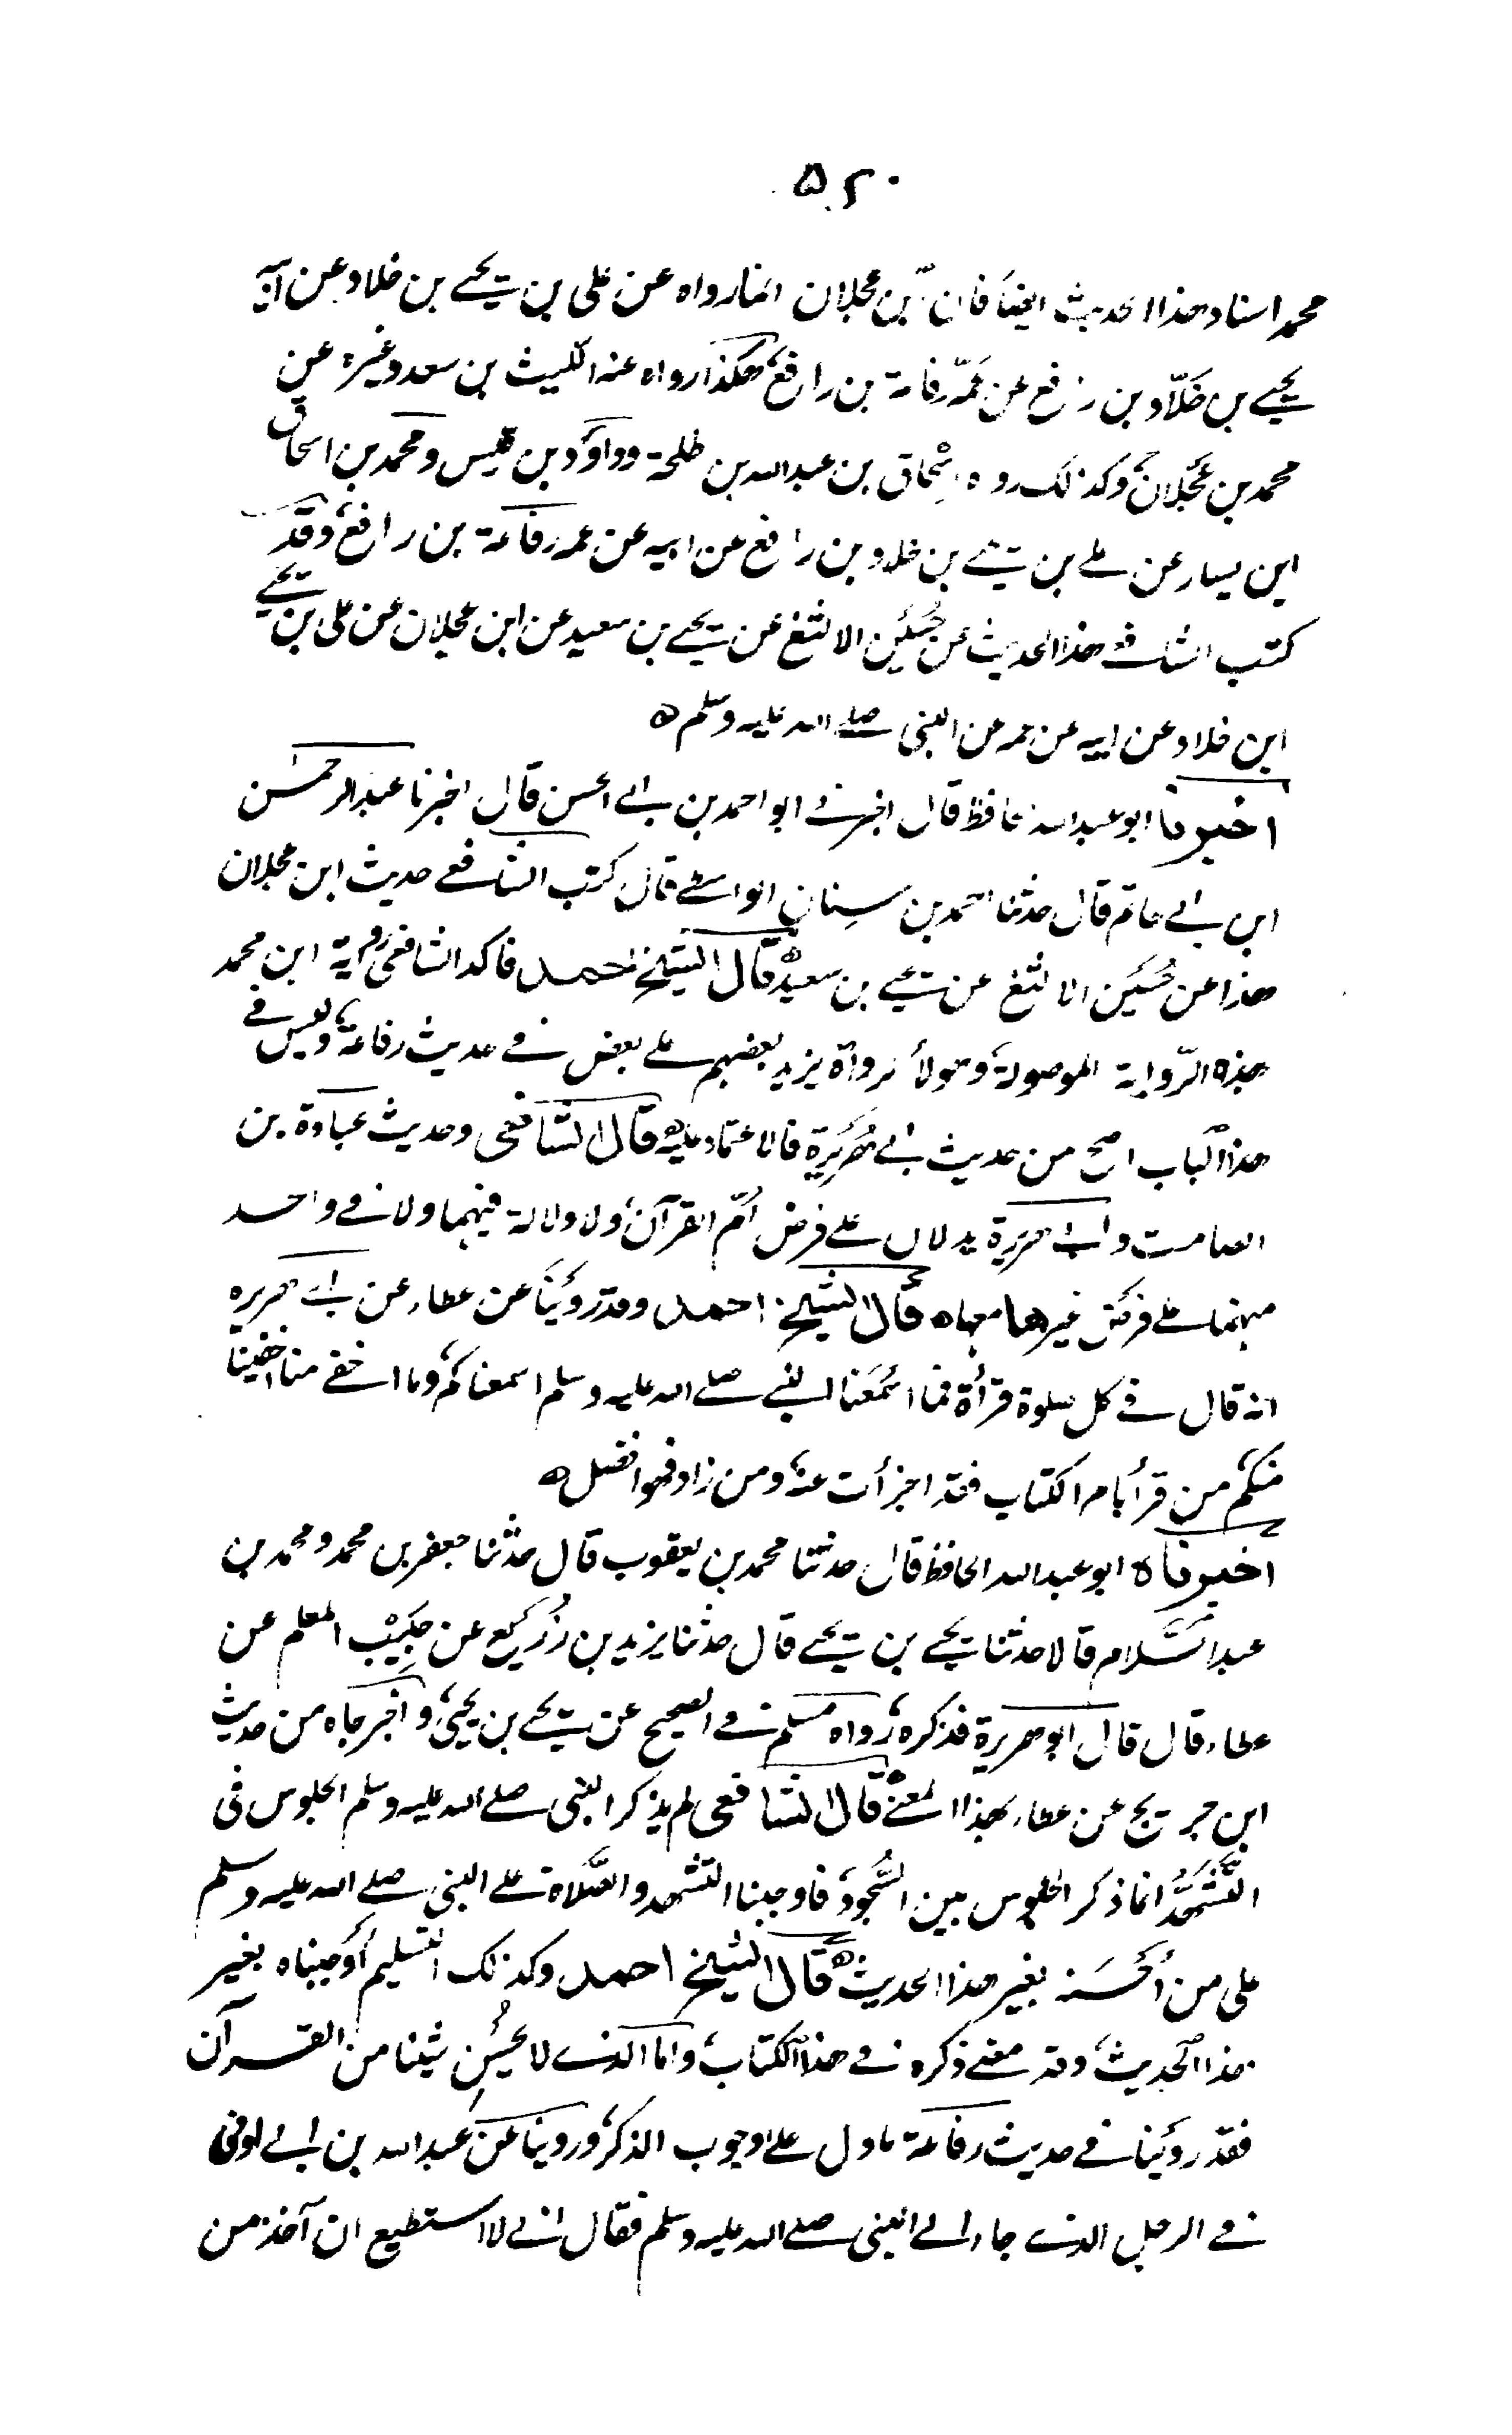 ۵۲۰
محمد اسناد هذا الحديث ايضا فان ابن عجلان انما رواه عن علي بن يحيے بن خلاد عن ابيه
يحيے بن خلّاد بن رافع عن عمّه رفاعة بن رافع، هكذا رواه عنه الليث بن سعد وغيره عن
محمد بن عجلان، وكذلك رواه اِسْحاق بن عبدالله بن طلحة وداؤد بن قيس ومحمد بن اسحاق
ابن يسار عن علے بن يحيے بن خلاد بن رافع عن ابيه عن عمه رفاعة بن رافع، وقد
كتب الشافعے هذا الحديث عن حُسَين الالثغ عن يحيے بن سعيد عن ابن عجلان عن علی بن يحيے
ابن خلاد عن ابيه عن عمه عن النبی صلے الله عليه وسلم ه
اخبرنا ابو عبدالله الحافظ قال اخبرنے ابو احمد بن ابے الحسن قال اخبرنا عبدالرحمٰن
ابن ابے حاتم قال حدثنا احمد بن سِنان الواسطے قال كتب الشافعے حديث ابن عجلان
هذا عن حُسَين الالثغ عن يحيے بن سعيد ه قال الشيخ احمد فاكد الشافعی رواية ابن محمد
بهذه الرّواية الموصولة، وهؤلاء الرواة يزيد بعضهم علے بعض فے حديث رفاعة، وليس فے
هذا الباب اصح من حديث ابے هُرَيرَة فالاعتماد عليه ه قال الشافعی وحديث عبادة بن
الصامت وابے هريرة يدلان علے فرض اُمّ القرآن، ولا دلالة فيهما ولا فے واحد
منهما علے فرض غيرها معها ه قال الشيخ احمد وقد رويْنَا عن عطاء عن ابے هريره
انه قال فے كل صلوة قرأة فما اسْمَعَنا النبے صلے الله عليه وسلم اسمعناكم، وما اخفے منا اخفينا
منكم، من قرأ بام الكتاب فقد اجزأت عنه، ومن زاد فهو افضل ه
اخبرناه ابو عبدالله الحافظ قال حدثنا محمد بن يعقوب قال حدثنا جعفر بن محمد ومحمد بن
عبدالسَّلام قالا حدثنا يحيے بن يحيے قال حدثنا يزيد بن زُرَيع عن حَبِيْب المعلم عن
عطاء قال قال ابو هريرة فذكره، رواه مسلم فے الصحيح عن يحيے بن يحيیٰ، واخرجاه من حديث
ابن جريج عن عطاء بهذا المعنے ه قال الشافعی لم يذكر النبی صلے الله عليه وسلم الجلوس فی
التَّشَهُّد انما ذكر الجلوس بين السُّجود، فاوجبنا التشهد والصَّلاة علے النبی صلے الله عليه وسلم
علی من اَحْسَنه بغير هذا الحديث ه قال الشيخ احمد وكذلك التسليم اَوْجبناه بغير
هذا الحديث، وقد مضے ذكره فے هذا الكتاب، واما الذے لا يُحْسِن شيئا من القرآن
فقد رويْنا فے حديث رفاعة ما دل علے وجوب الذكر، وروينا عن عبدالله بن ابے اوفی
فے الرجل الذے جاء الے النبی صلے الله عليه وسلم فقال انے لا استطيع ان آخذ من